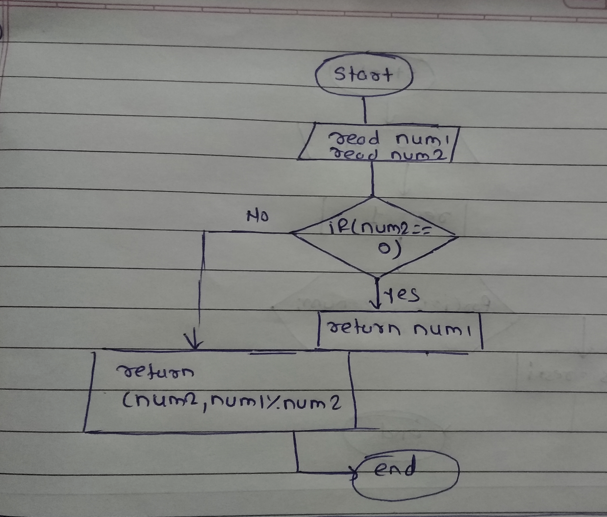 Start
read num1
read num2
No
if(num2==
0)
yes
return num1
return
(num2,num1%num2
end